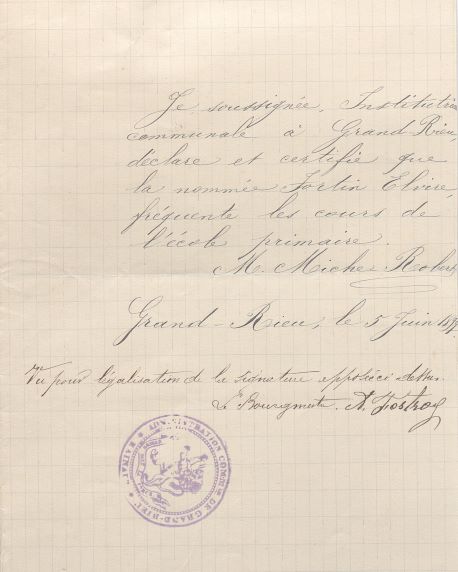 Je soussignée, Institutrice
communale à Grand-Rieu,
déclare et certifie que
la nommée Fortin Elvire,
fréquente les cours de
l'école primaire.
M. Michez Robert
Grand-Rieu, le 5 Juin
Vu pour légalisation de la signature apposée ci dessus.
Le Bourgmestre
ADMINISTRATION COMMle DE GRAND-RIEU
HAINAUT